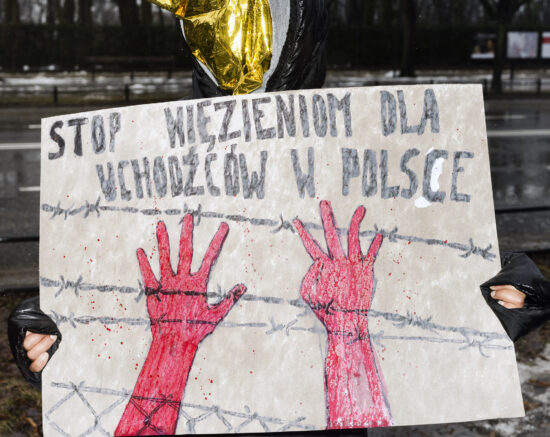 STOP WIĘZIENIOM DLA
UCHODŹCÓW W POLSCE